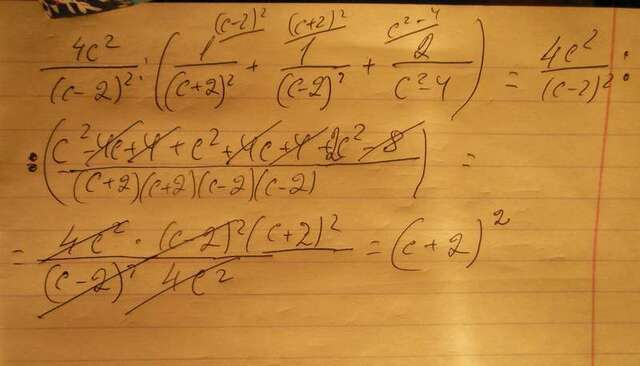 4c² / (c-2)² : ( 1 / (c+2)² (c-2)² + 1 / (c-2)² (c+2)² + 2 / c²-4 c²-4 ) = 4c² / (c-2)² :
: ( c² -4c+4 + c² +4c+4 +2c² -8 / (c+2)(c+2)(c-2)(c-2) ) =
= 4c² · (c-2)² (c+2)² / (c-2)² 4c² = (c+2)²